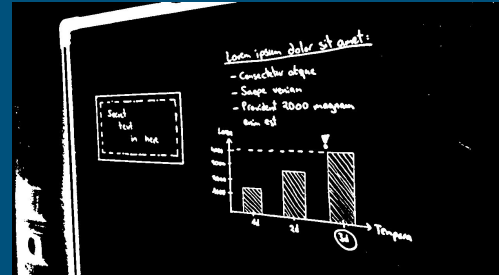 Lorem ipsum dolor sit amet:
- Consectetur atque
- Saepe veniam
- Provident 2000 magnam
enim est
Secret
text
in here
4000
3000
2000
1000
2d
3d
Tempora